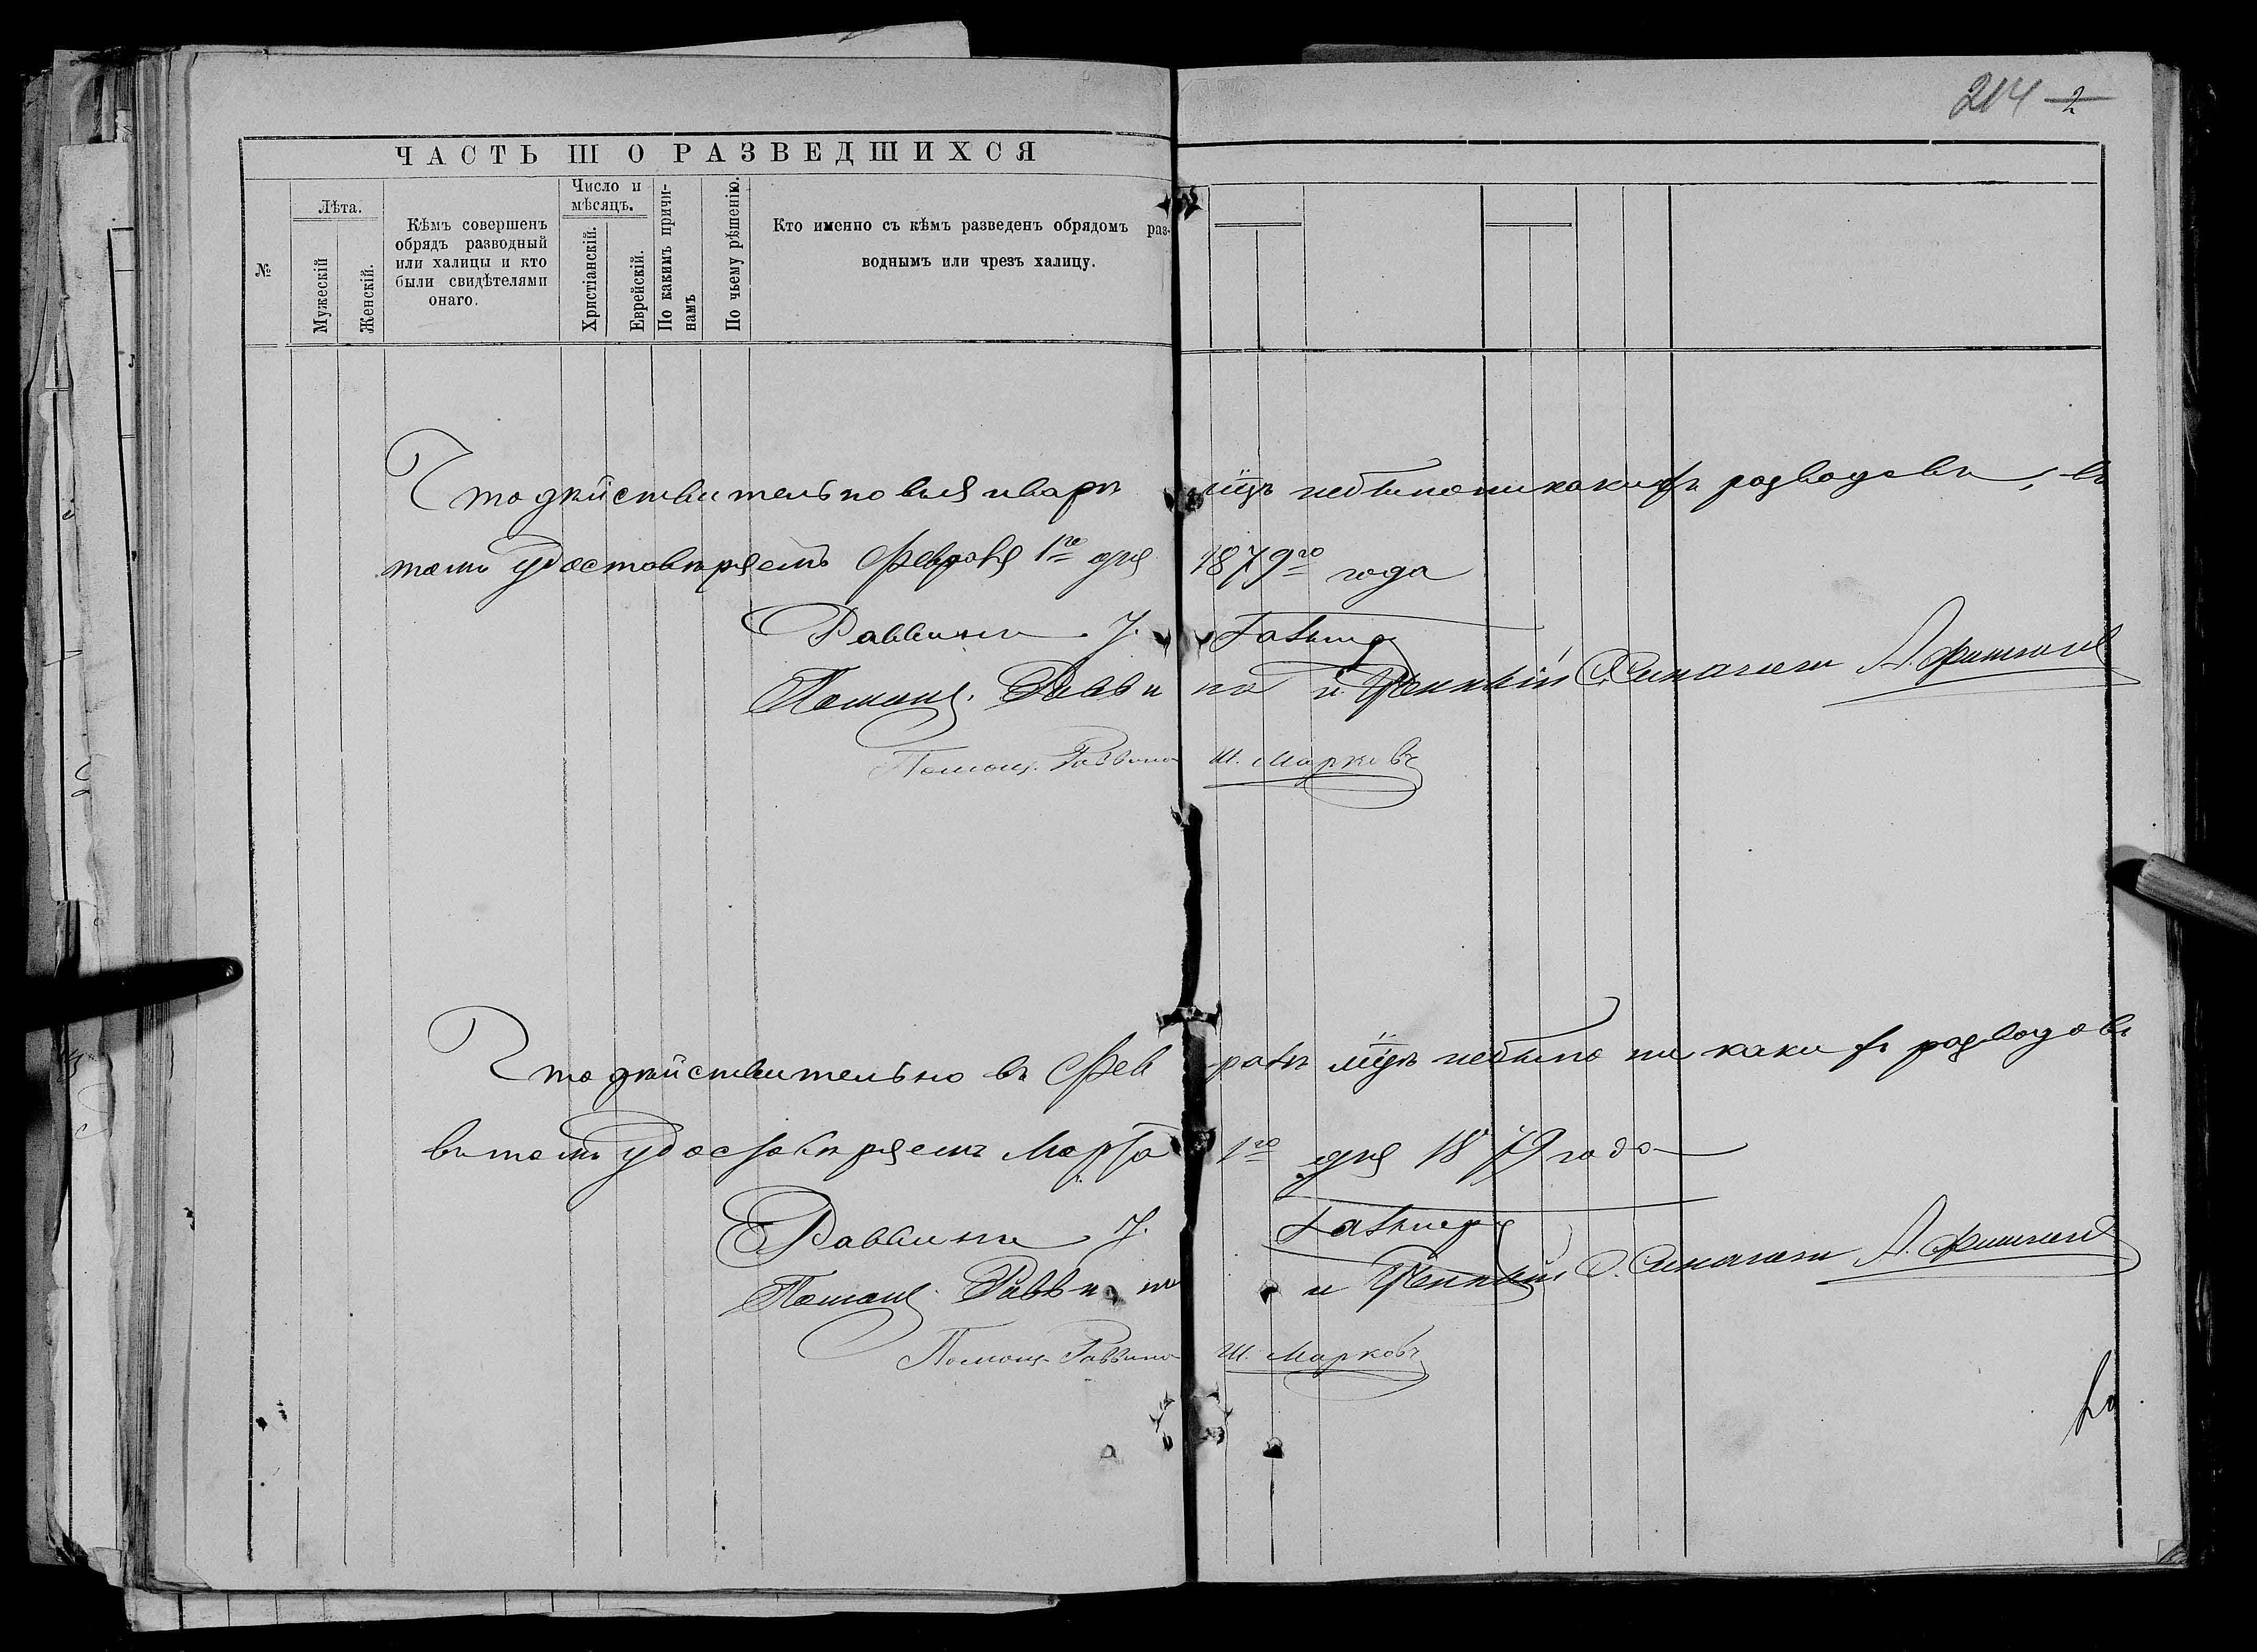 214 2
ЧАСТЬ III О РАЗВЕДШИХСЯ
№
Лѣта.
Мужескій
Женскій.
Кѣмъ совершенъ
обрядъ разводный
или халицы и кто
были свидѣтелями
онаго.
Число и
мѣсяцъ.
Христіанскій.
Еврейскій.
По какимъ причи-
намъ
По чьему рѣшенію.
Кто именно съ кѣмъ разведенъ обрядомъ раз-
воднымъ или чрезъ халицу.
Что дѣйствительно въ январѣ м-цѣ небыло никакихъ разводовъ, въ
томъ удостовѣряемъ Февраля 1го дня 1879го года
Раввинъ
Помощ. Раввина и Ученый
Помощ. Раввина Ш. Марковъ
Что дѣйствительно въ Февралѣ м-цѣ небыло никакихъ разводовъ
въ томъ удостовѣряемъ Марта 1го дня 1879 года
Раввинъ
Помощ. Раввина и Ученый
Помощ. Раввина Ш. Марковъ